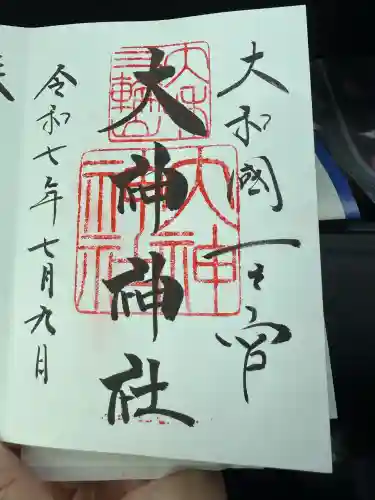 大和國一之宮
大神神社
令和七年七月九日
三輪
大神
神社